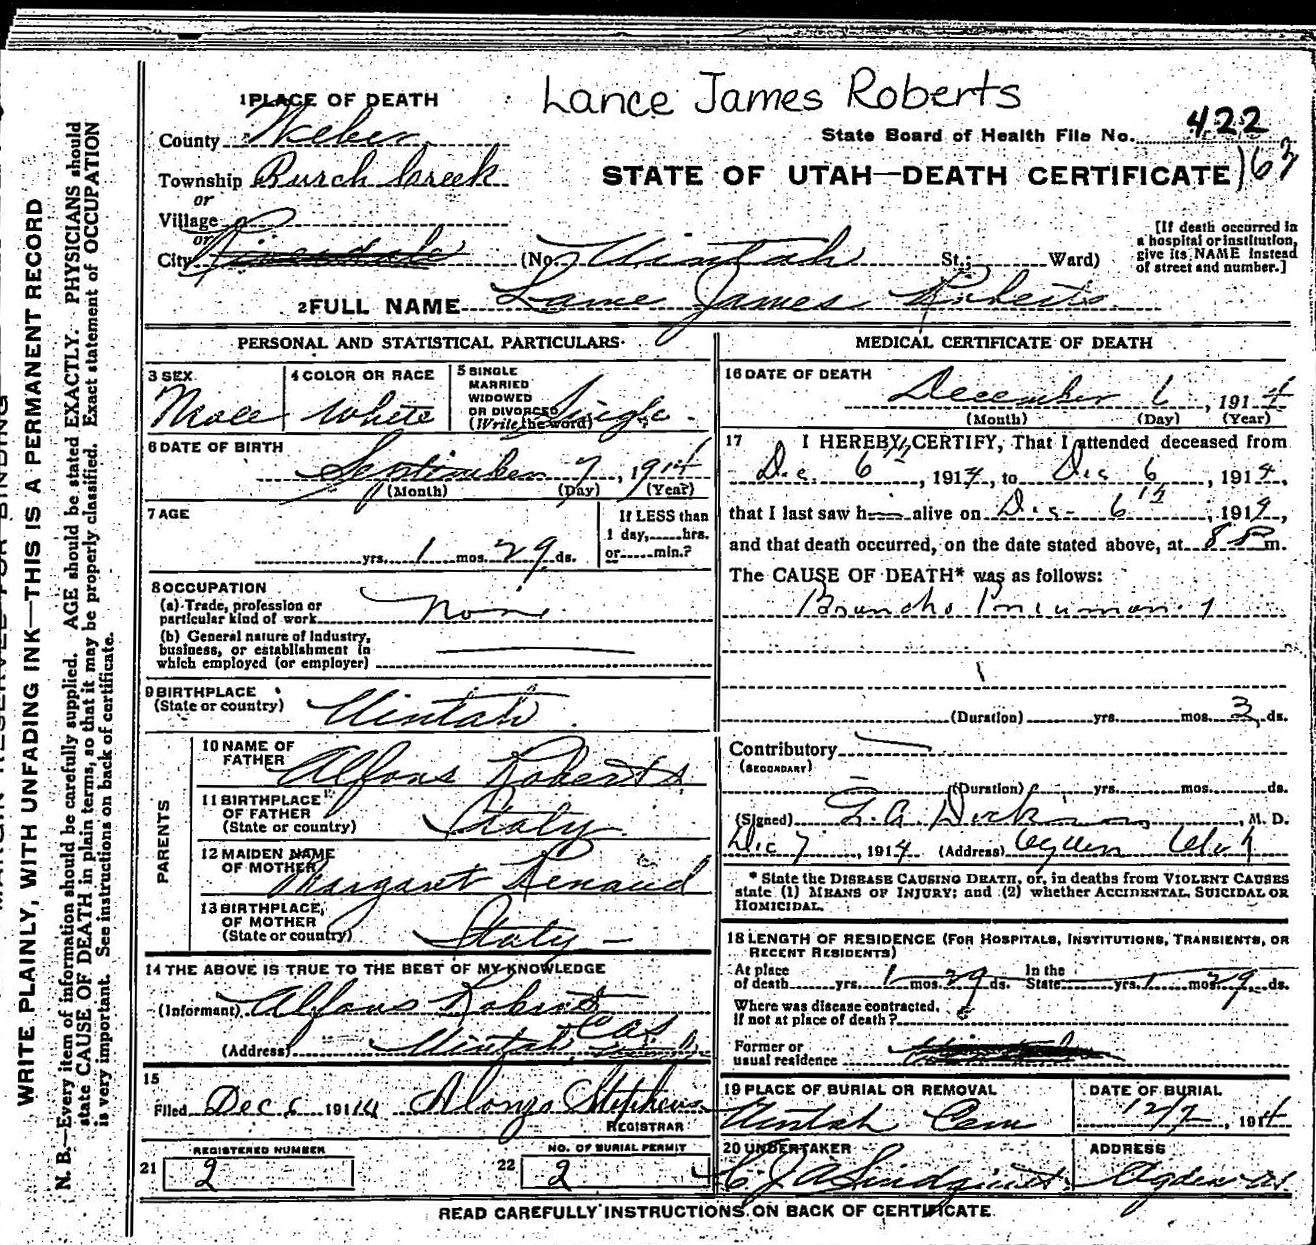 Lance James Roberts
1 PLACE OF DEATH
County Weber
State Board of Health File No. 422
Township Burch Creek
STATE OF UTAH—DEATH CERTIFICATE 163
or
Village
or
City Riverdale (No. Uintah St.; Ward)
[If death occurred in
a hospital or institution,
give its NAME instead
of street and number.]
2 FULL NAME Lance James Roberts
PERSONAL AND STATISTICAL PARTICULARS
3 SEX Male
4 COLOR OR RACE White
5 SINGLE
MARRIED
WIDOWED
OR DIVORCED
(Write the word) Single
6 DATE OF BIRTH
September 7, 1914
(Month) (Day) (Year)
7 AGE
yrs. 1 mos. 29 ds.
If LESS than
1 day, hrs.
or min.?
8 OCCUPATION
(a) Trade, profession or
particular kind of work None
(b) General nature of industry,
business, or establishment in
which employed (or employer)
9 BIRTHPLACE
(State or country) Uintah
PARENTS
10 NAME OF
FATHER Alfons Roberts
11 BIRTHPLACE
OF FATHER
(State or country) Italy
12 MAIDEN NAME
OF MOTHER Margaret Renaud
13 BIRTHPLACE
OF MOTHER
(State or country) Italy
14 THE ABOVE IS TRUE TO THE BEST OF MY KNOWLEDGE
(Informant) Alfons Roberts
(Address) Uintah
15
Filed Dec 6 1914 Alonzo Stephens
REGISTRAR
21 REGISTERED NUMBER
2
22 NO. OF BURIAL PERMIT
2
MEDICAL CERTIFICATE OF DEATH
16 DATE OF DEATH
December 6, 1914
(Month) (Day) (Year)
17 I HEREBY CERTIFY, That I attended deceased from
Dec. 6th, 1914, to Dec 6, 1914,
that I last saw h alive on Dec- 6th, 1914,
and that death occurred, on the date stated above, at 8 P m.
The CAUSE OF DEATH* was as follows:
Broncho Pneumonia
(Duration) yrs. mos. 3 ds.
Contributory
(SECONDARY)
(Duration) yrs. mos. ds.
(Signed) , M. D.
Dec 7, 1914 (Address) Ogden Utah
* State the DISEASE CAUSING DEATH, or, in deaths from VIOLENT CAUSES
state (1) MEANS OF INJURY; and (2) whether ACCIDENTAL, SUICIDAL OR
HOMICIDAL.
18 LENGTH OF RESIDENCE (FOR HOSPITALS, INSTITUTIONS, TRANSIENTS, OR
RECENT RESIDENTS)
At place
of death yrs. 1 mos. 29 ds. In the
State yrs. 1 mos. 29 ds.
Where was disease contracted,
if not at place of death?
Former or
usual residence
19 PLACE OF BURIAL OR REMOVAL
Uintah Cem
DATE OF BURIAL
12/7, 1914
20 UNDERTAKER
C. J. A. Lindquist
ADDRESS
Ogden
READ CAREFULLY INSTRUCTIONS ON BACK OF CERTIFICATE
WRITE PLAINLY, WITH UNFADING INK—THIS IS A PERMANENT RECORD
N. B.—Every item of information should be carefully supplied. AGE should be stated EXACTLY. PHYSICIANS should
state CAUSE OF DEATH in plain terms, so that it may be properly classified. Exact statement of OCCUPATION
is very important. See instructions on back of certificate.